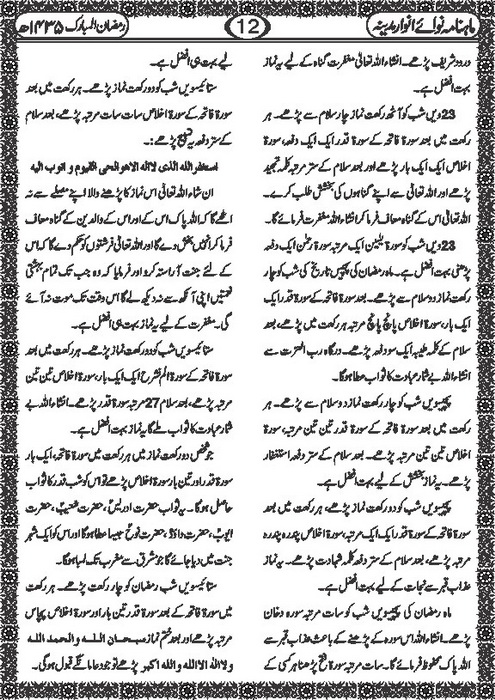 ماہنامہ نوائے انوار مدینہ
12
رمضان المبارک ۱۴۳۵ھ
درود شریف پڑھے۔ انشاء اللہ تعالیٰ مغفرت گناہ کے لیے یہ نماز
بہت افضل ہے۔
23 ویں شب کو آٹھ رکعت نماز چار سلام سے پڑھے۔ ہر
رکعت میں بعد سورۃ فاتحہ کے سورۃ قدر ایک ایک دفعہ، سورۃ
اخلاص ایک ایک بار پڑھے اور بعد سلام کے ستر مرتبہ کلمہ تمجید
پڑھے اور اللہ تعالیٰ سے اپنے گناہوں کی بخشش طلب کرے۔
اللہ تعالیٰ اس کے گناہ معاف فرما کر انشاء اللہ مغفرت فرمائے گا۔
23 ویں شب کو سورۃ یٰسین ایک مرتبہ سورۃ رحمٰن ایک دفعہ
پڑھنی بہت افضل ہے۔ ماہ رمضان کی پچیس تاریخ کی شب کو چار
رکعت نماز دو سلام سے پڑھے۔ بعد سورۃ فاتحہ کے سورۃ قدر ایک
ایک بار، سورۃ اخلاص پانچ پانچ مرتبہ ہر رکعت میں پڑھے، بعد
سلام کے کلمہ طیبہ ایک سو دفعہ پڑھے۔ درگاہ رب العزت سے
انشاء اللہ بے شمار عبادت کا ثواب عطا ہوگا۔
پچیسویں شب کو چار رکعت نماز دو سلام سے پڑھے۔ ہر
رکعت میں بعد سورۃ فاتحہ کے سورۃ قدر تین تین مرتبہ، سورۃ
اخلاص تین تین مرتبہ پڑھے۔ بعد سلام کے ستر دفعہ استغفار
پڑھے۔ یہ نماز بخشش کے لیے بہت افضل ہے۔
پچیسویں شب کو دو رکعت نماز پڑھے، ہر رکعت میں بعد
سورۃ فاتحہ کے سورۃ قدر ایک ایک مرتبہ، سورۃ اخلاص پندرہ پندرہ
مرتبہ پڑھے، بعد سلام کے ستر دفعہ کلمہ شہادت پڑھے۔ یہ نماز
عذاب قبر سے نجات کے لیے بہت افضل ہے۔
ماہ رمضان کی پچیسویں شب کو سات مرتبہ سورہ دخان
پڑھے۔ انشاء اللہ اس سورہ کے پڑھنے کے باعث عذاب قبر سے
اللہ پاک محفوظ فرمائے گا۔ سات مرتبہ سورۃ فتح پڑھنا ہر کسی کے
لیے بہت ہی افضل ہے۔
ستائیسویں شب کو دو رکعت نماز پڑھے۔ ہر رکعت میں بعد
سورۃ فاتحہ کے سورۃ اخلاص سات سات مرتبہ پڑھے، بعد سلام
کے ستر دفعہ یہ تسبیح پڑھے:۔
استغفر اللہ الذی لا الہ الا ھو الحی القیوم و اتوب الیہ
ان شاء اللہ تعالیٰ اس نماز کا پڑھنے والا اپنے مصلے سے نہ
اٹھے گا کہ اللہ پاک اس کے اور اس کے والدین کے گناہ معاف
فرما کر انہیں بخش دے گا اور اللہ تعالیٰ فرشتوں کو حکم دے گا کہ اس
کے لئے جنت آراستہ کرو اور فرمایا کہ وہ جب تک تمام بہشتی
نعمتیں اپنی آنکھ سے نہ دیکھ لے گا اس وقت تک موت نہ آئے
گی۔ مغفرت کے لیے یہ نماز بہت ہی افضل ہے۔
ستائیسویں شب کو دو رکعت نماز پڑھے۔ ہر رکعت میں بعد
سورۃ فاتحہ کے سورۃ الم نشرح ایک ایک بار، سورۃ اخلاص تین تین
مرتبہ پڑھے، بعد سلام 27 مرتبہ سورۃ قدر پڑھے۔ انشاء اللہ بے
شمار عبادت کا ثواب ملے گا یہ نماز بہت افضل ہے۔
جو شخص دو رکعت نماز میں ہر رکعت میں سورۃ فاتحہ، ایک بار
سورۃ قدر اور تین بار سورۃ اخلاص پڑھے تو اس کو شب قدر کا ثواب
حاصل ہوگا۔ یہ ثواب حضرت ادریسؑ، حضرت شعیبؑ، حضرت
ایوبؑ، حضرت داؤدؑ، حضرت نوحؑ جیسا عطا ہوگا اور اس کو ایک شہر
جنت میں دیا جائے گا جو مشرق سے مغرب تک لمبا ہوگا۔
ستائیسویں شب رمضان کو چار رکعت پڑھے۔ ہر رکعت
میں سورۃ فاتحہ کے بعد سورۃ قدر تین بار اور سورۃ اخلاص پچاس
مرتبہ پڑھے اور بعد ختم نماز سبحان اللہ والحمد للہ
ولا الہ الا اللہ واللہ اکبر پڑھے تو جو دعا مانگے قبول ہوگی۔